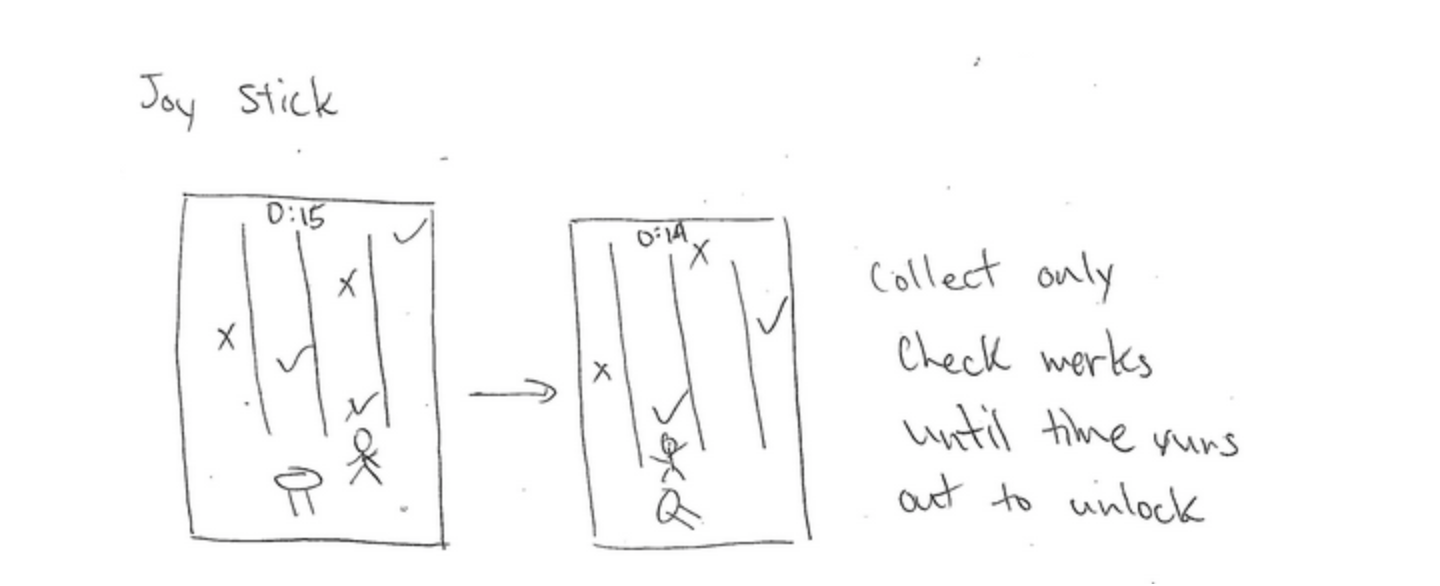 Joy stick
0:15
0:14
Collect only
check marks
until time runs
out to unlock